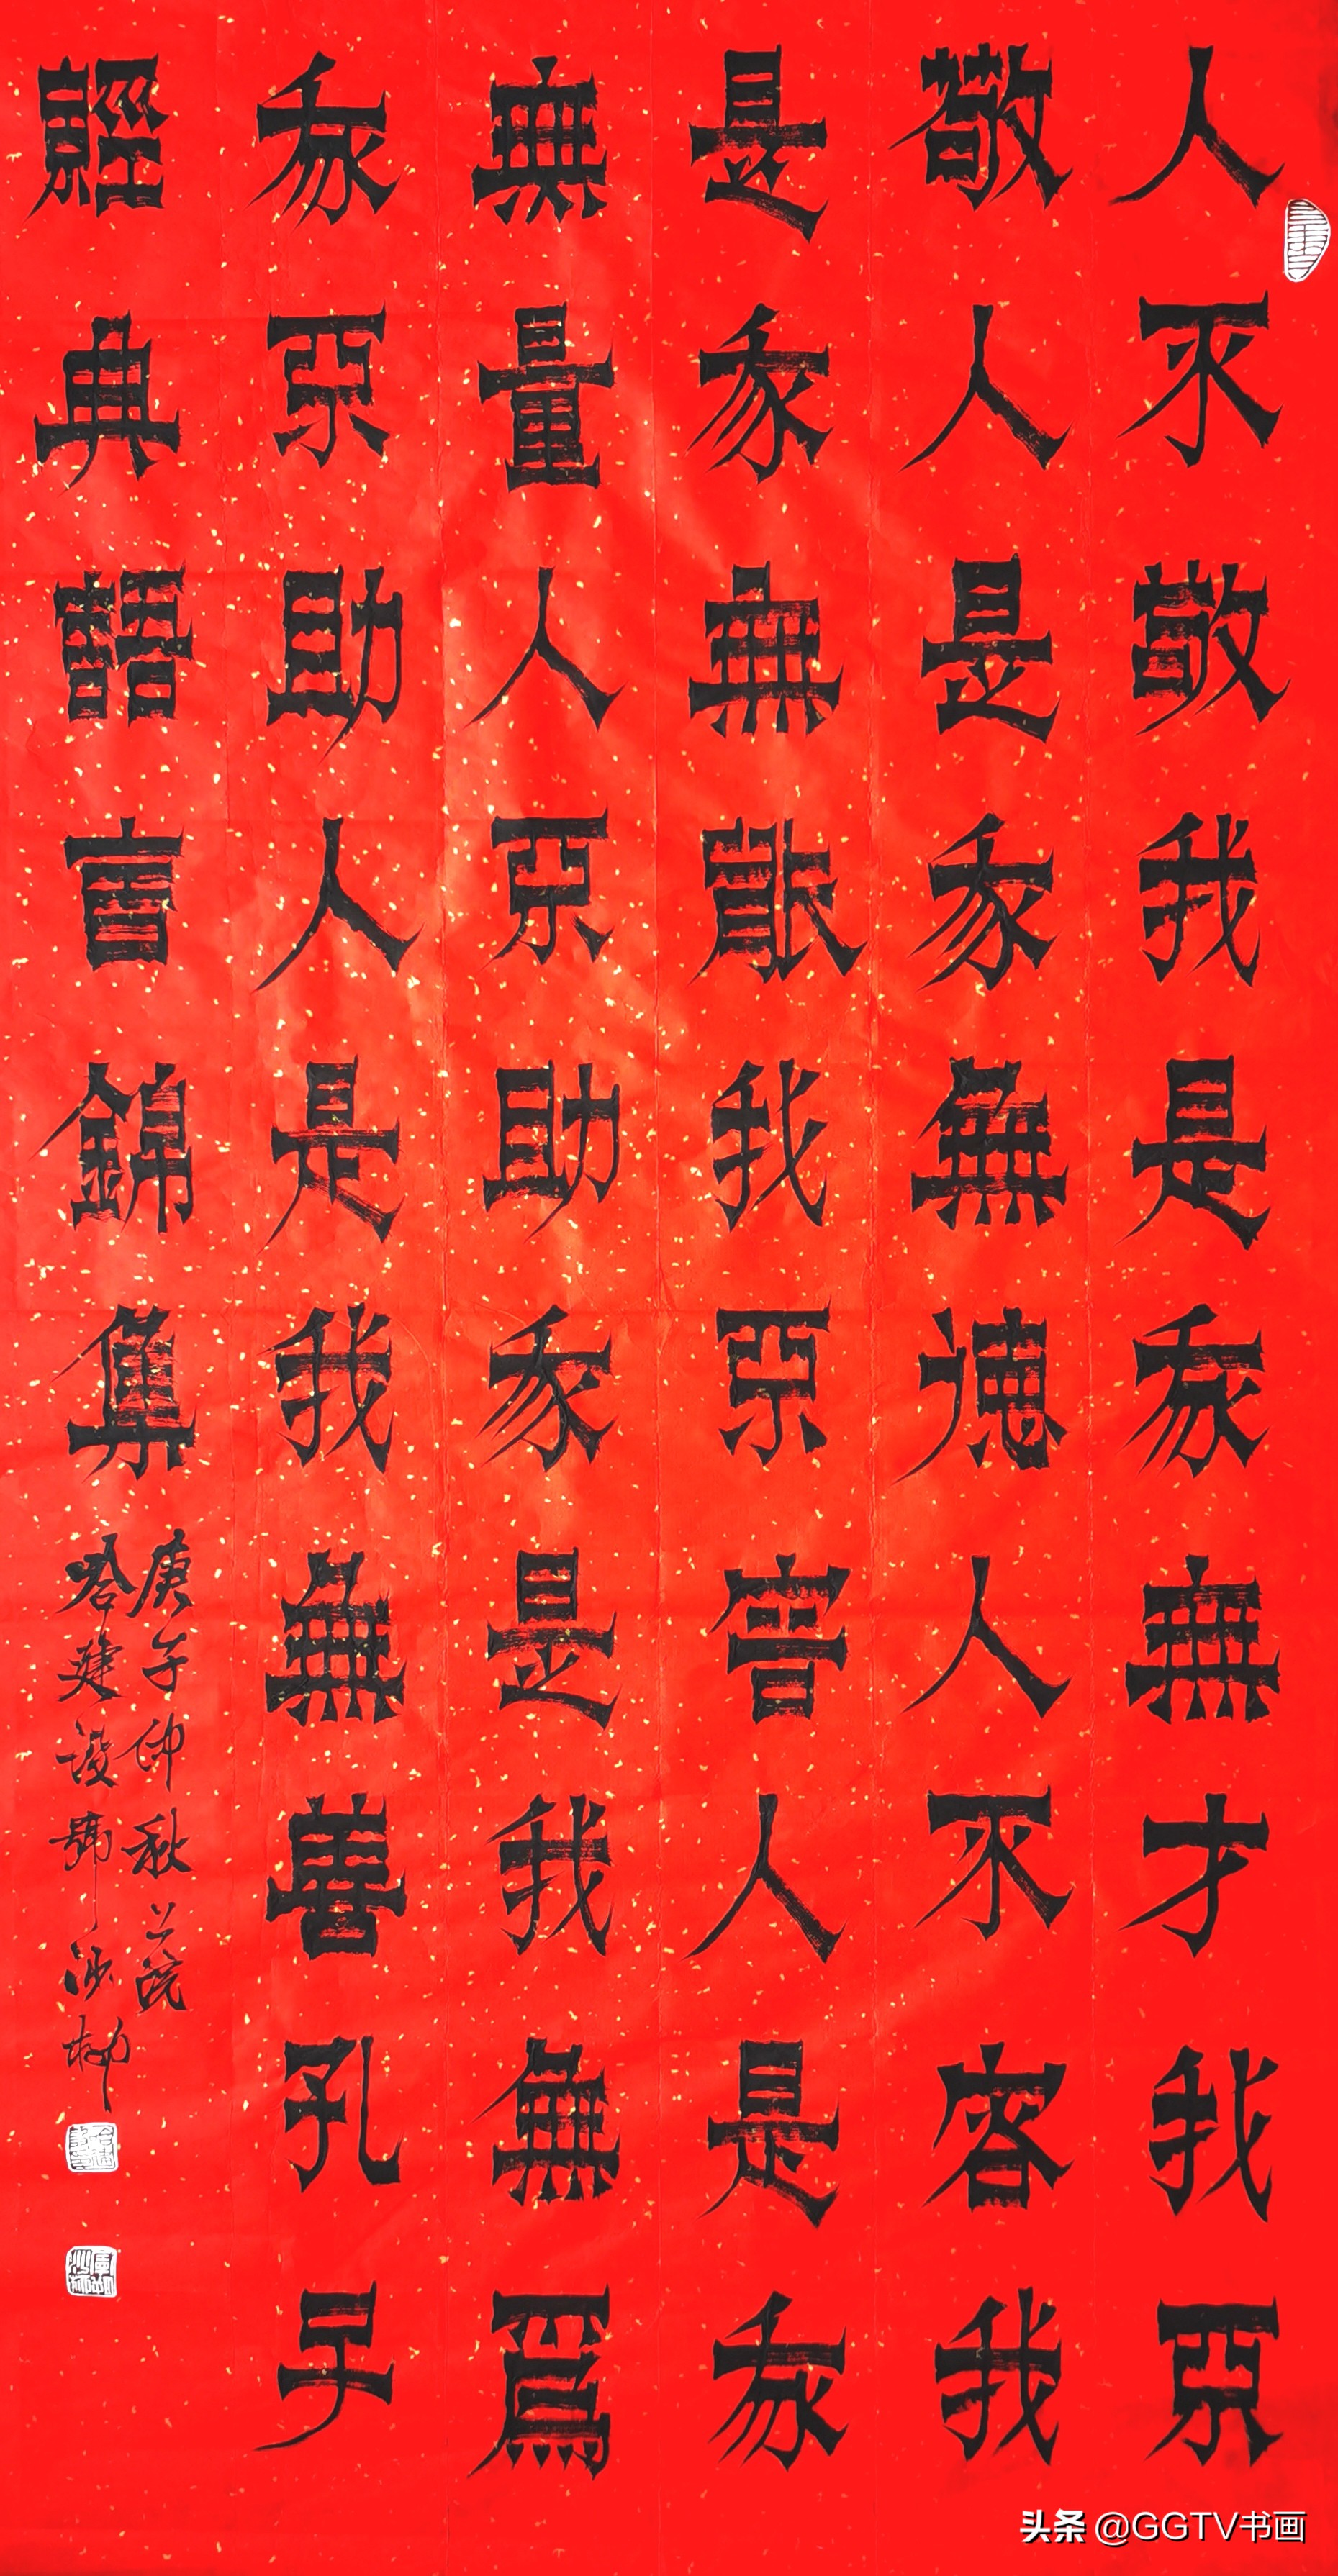 人不敬我是我無才我不
敬人是我無德人不容我
是我無能我不容人是我
無量人不助我是我無爲
我不助人是我無善孔子
經典語言錦集
庚子仲秋
哈建設號沙柳
头条 @GGTV书画